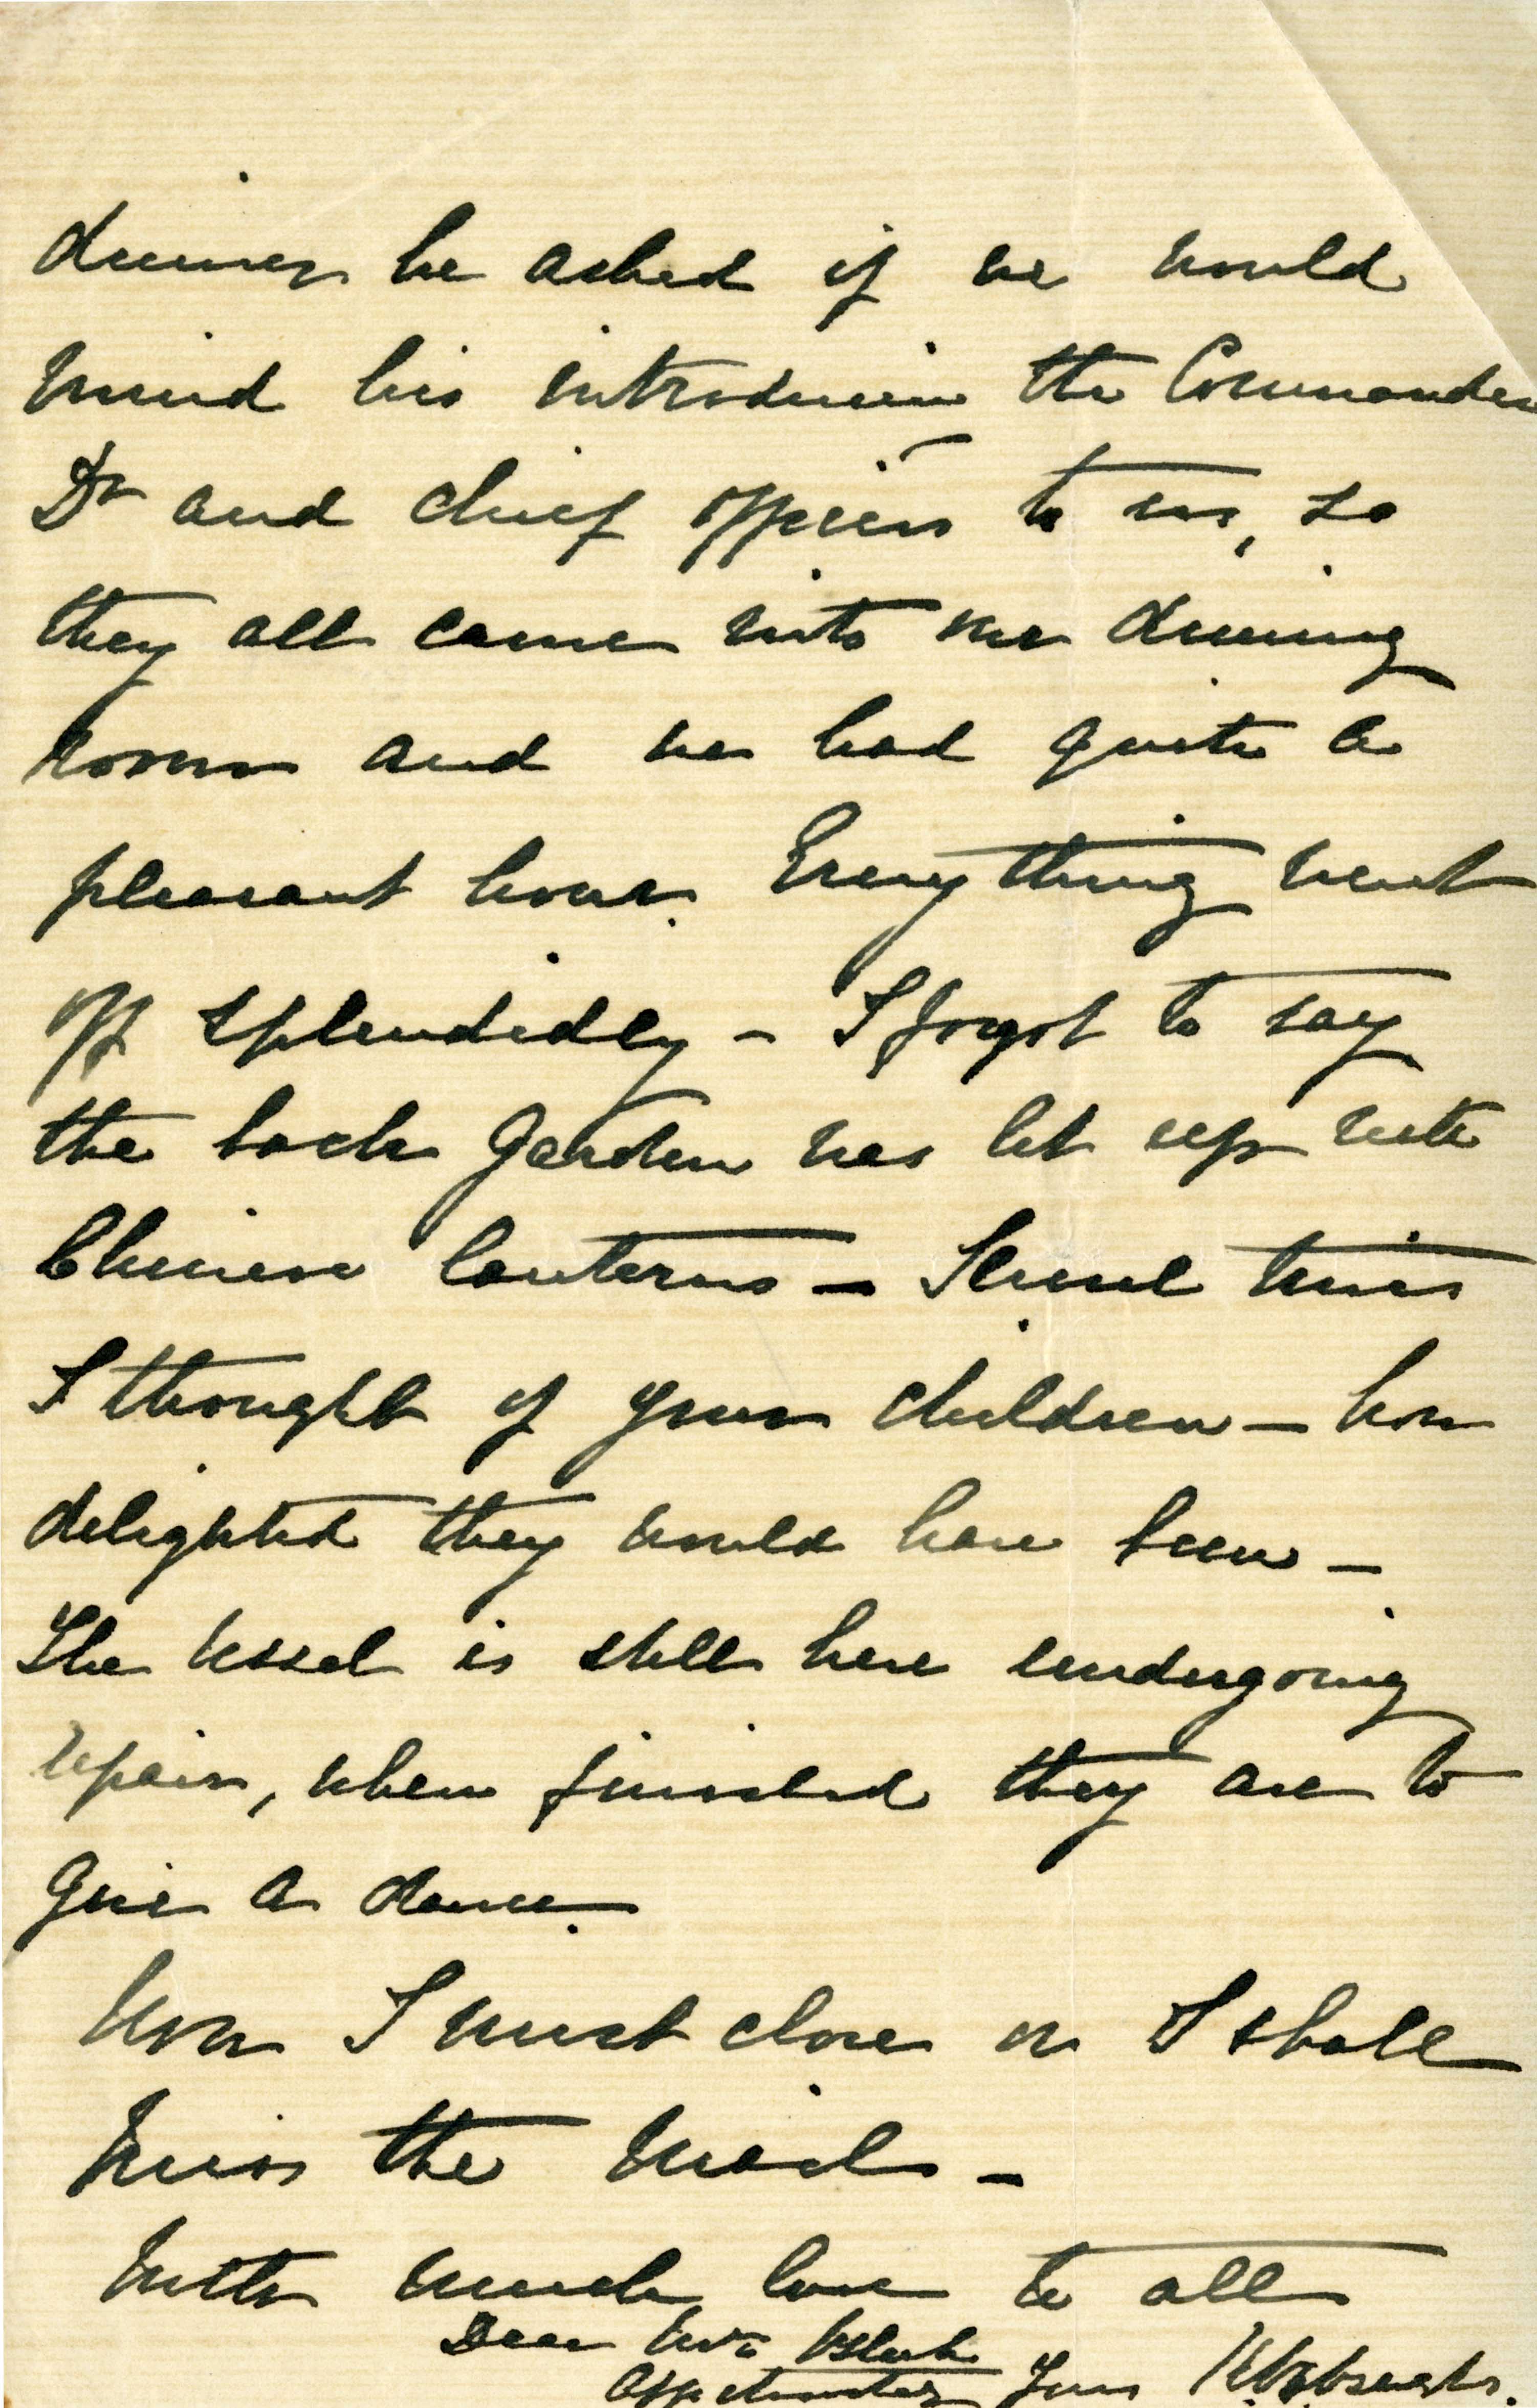 dinner he asked if we would
mind his introducing the Commander
Dr and chief officers to us, so
they all came into the dining
room and we had quite a
pleasant hour. Everything went
off splendidly - I forgot to say
the back garden was lit up with
Chinese lanterns - Several times
I thought of your children - how
delighted they would have been -
The vessel is still here undergoing
repairs, when finished they are to
give a dance.
Now I must close or I shall
miss the mail -
With much love to all
Dear Mrs
Affectionately Yours